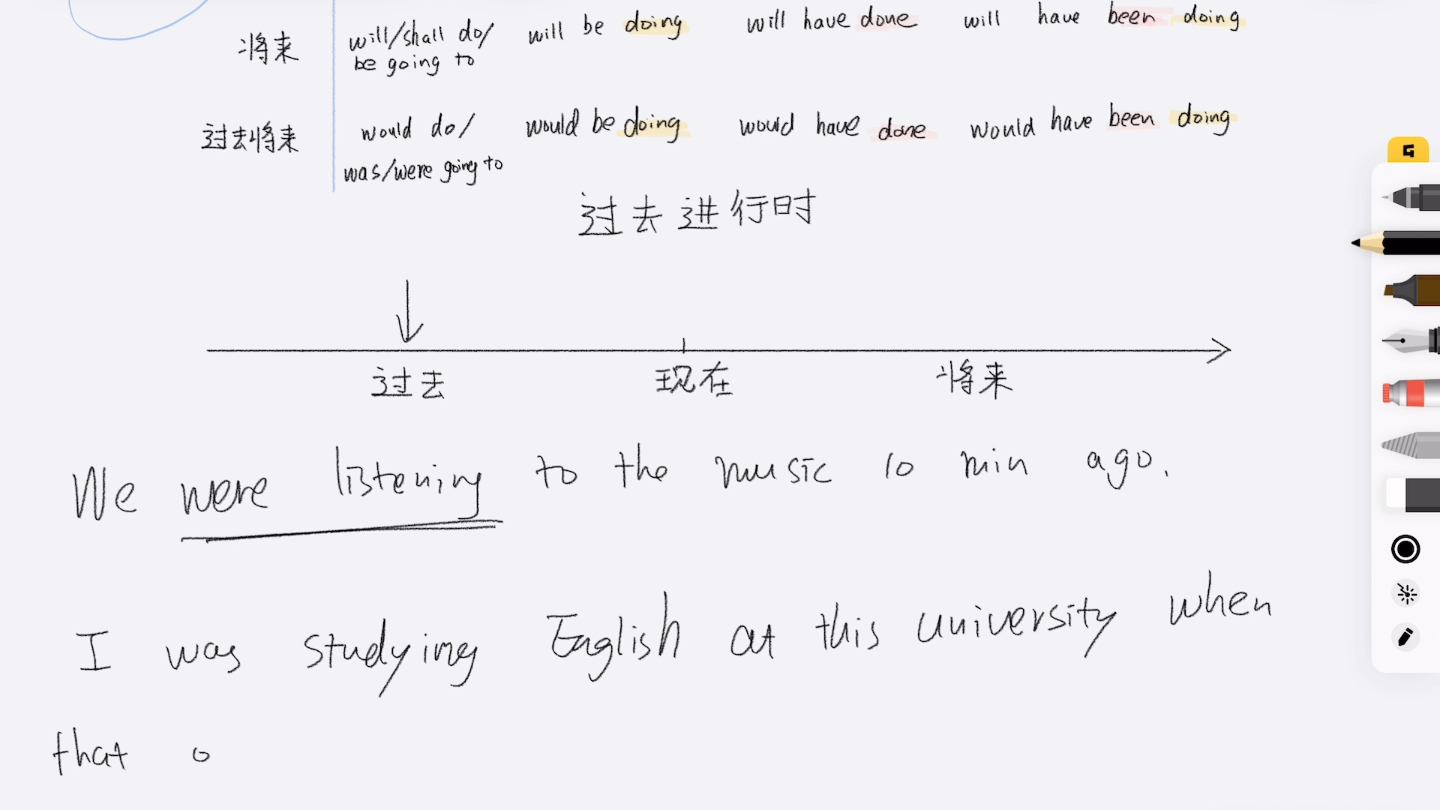 将来 will/shall do/ will be doing will have done will have been doing
be going to
过去将来 would do/ would be doing would have done would have been doing
was/were going to
过去进行时
过去 现在 将来
We were listening to the music 10 min ago.
I was studying English at this university when
that o